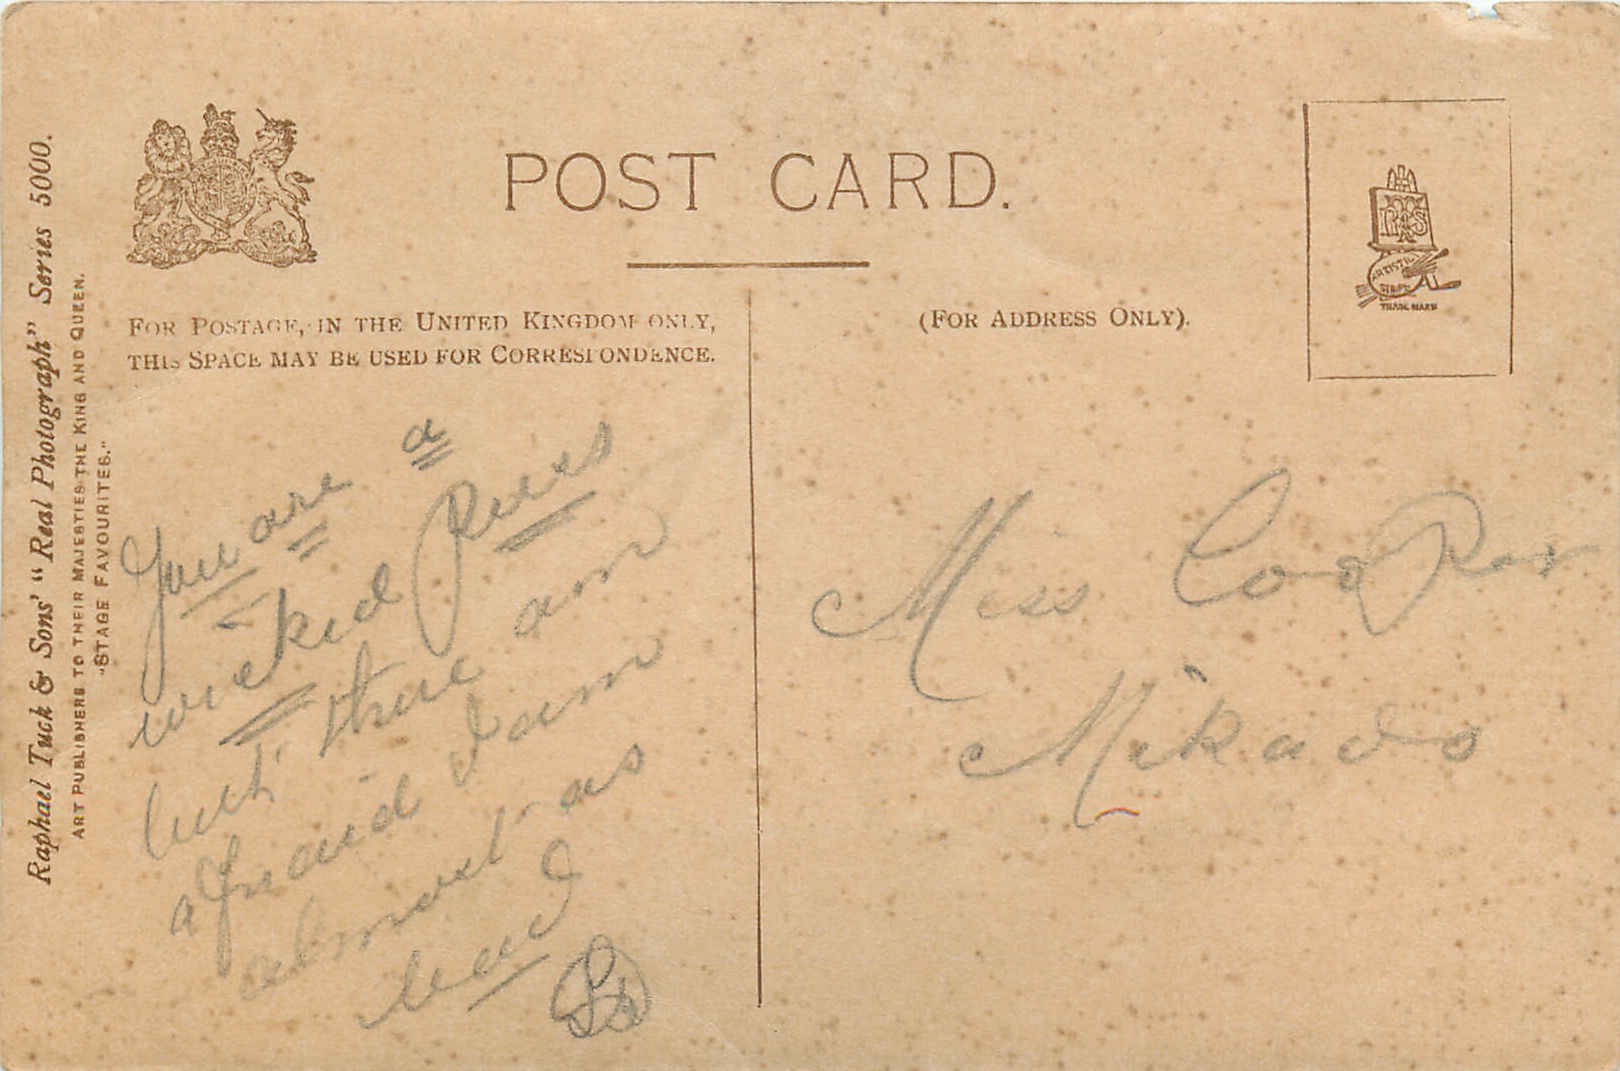 Raphael Tuck & Sons' "Real Photograph" Series 5000.
ART PUBLISHERS TO THEIR MAJESTIES THE KING AND QUEEN.
"STAGE FAVOURITES."
POST CARD.
FOR POSTAGE, IN THE UNITED KINGDOM ONLY,
THIS SPACE MAY BE USED FOR CORRESPONDENCE.
(FOR ADDRESS ONLY).
ARTISTIC
TRADE MARK
You are a
wicked Puss
but there am
afraid I am
almost as
bad
Miss Cooper
Mikado